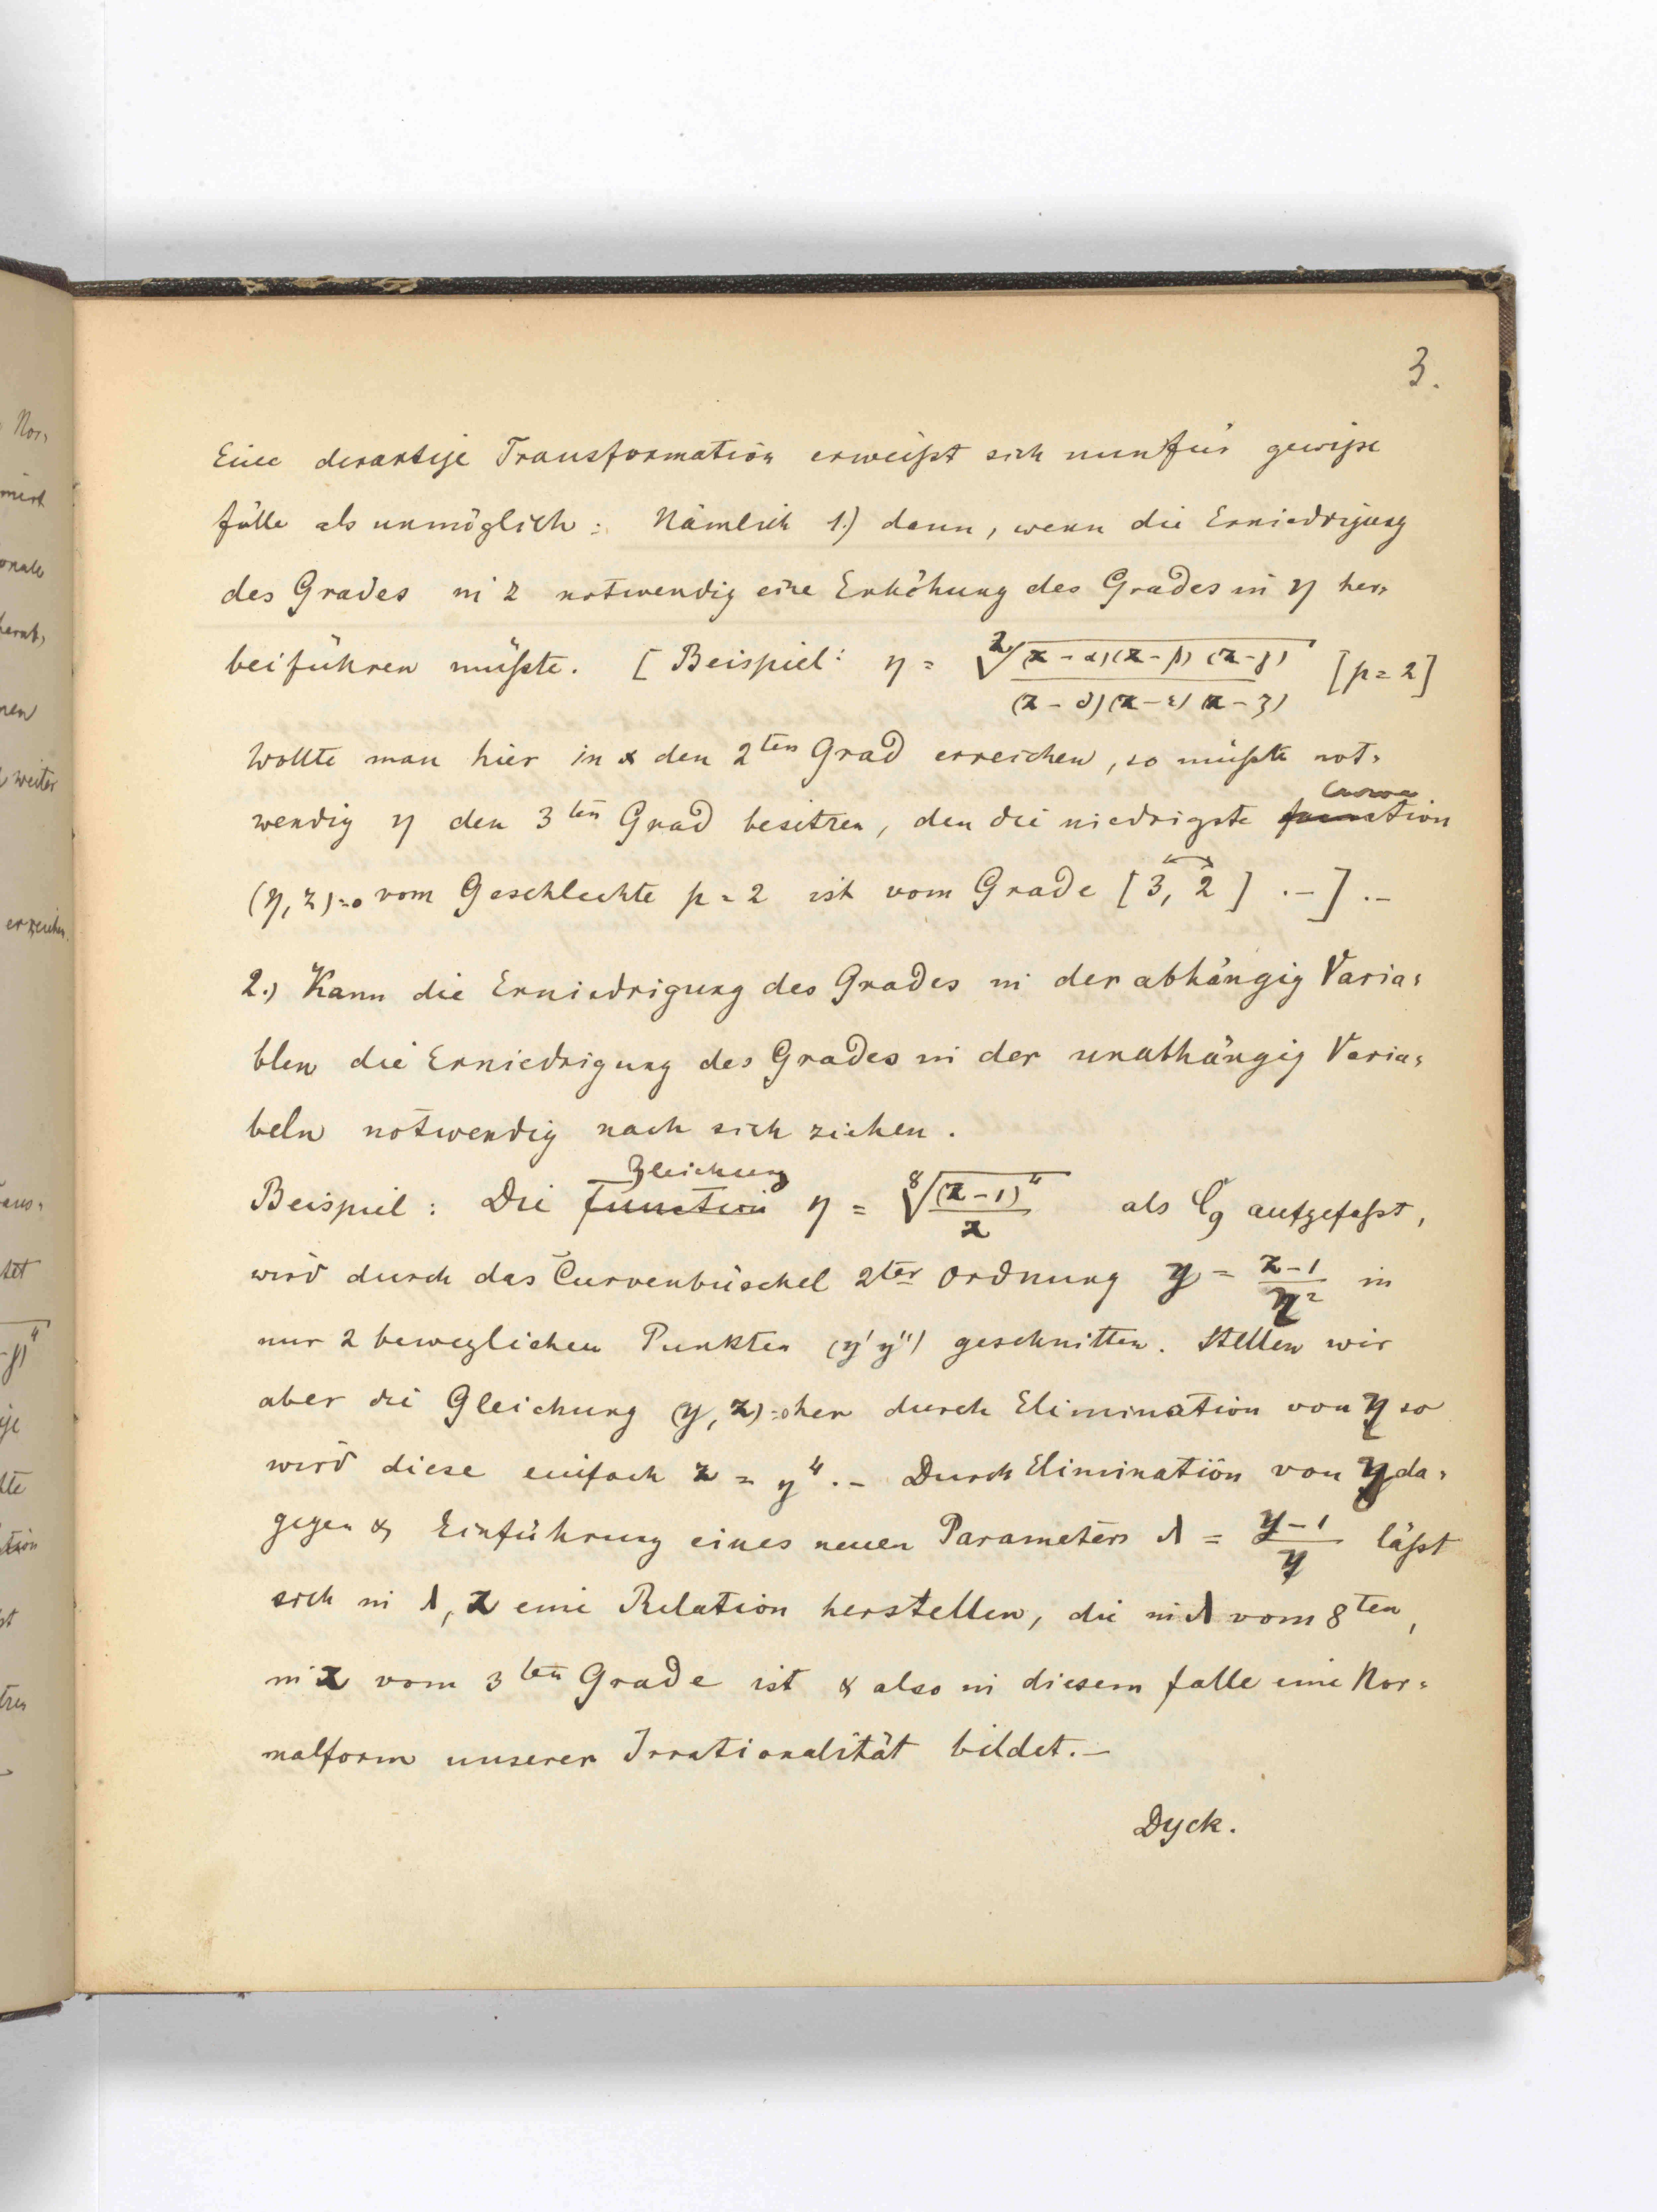 Nor-
mirt
onale
herab-
nen
weiter
erreichen.
aus-
tet
ije
tte
ction
st
tren
3.
Eine derartige Transformation erweißt sich nun für gewiße
fälle als unmöglich: Nämlich 1.) dann, wenn die Erniedrigung
des Grades in z notwendig eine Erhöhung des Grades in η her-
beiführen müßte. [Beispiel: η = ²√(z-α)(z-β)(z-γ) / (z-δ)(z-ε)(z-ζ) [p=2]
Wollte man hier in z den 2ten Grad erreichen, so müßte not-
wendig η den 3ten Grad besitzen, den die niedrigste function Curve
(η, z)=0 vom Geschlechte p=2 ist vom Grade [3, 2] .-] .-
2.) Kann die Erniedrigung des Grades in der abhängig Varia-
blen die Erniedrigung des Grades in der unabhängig Varia-
beln notwendig nach sich ziehen.
Beispiel: Die function Gleichung η = ⁸√(z-1)⁴ / z als C₉ aufgefaßt,
wird durch das Curvenbüschel 2ter Ordnung y = z-1 / η² in
nur 2 beweglichen Punkten (y' y'') geschnitten. Stellen wir
aber die Gleichung (y, z)=0 her durch Elimination von η so
wird diese einfach z = y⁴ .- Durch Elimination von y da-
gegen & Einführung eines neuen Parameters λ = y-1 / η läßt
sich in λ, z eine Relation herstellen, die in λ vom 8ten,
in z vom 3ten Grade ist & also in diesem falle eine Nor-
malform unserer Irrationalität bildet.-
Dyck.